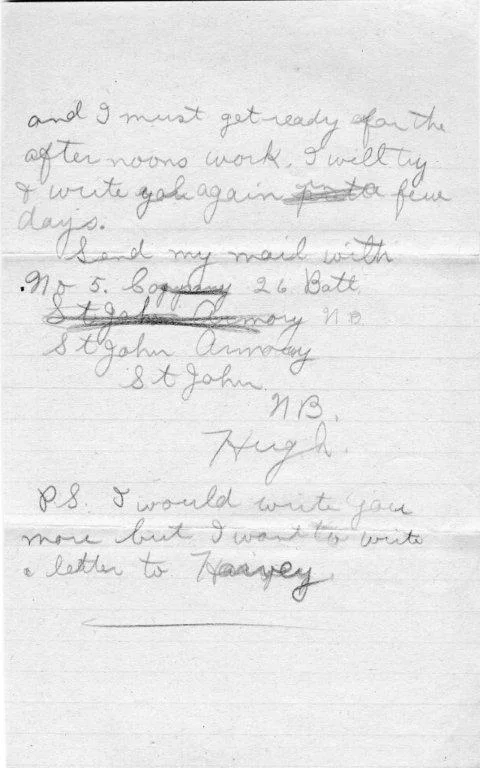 and I must get ready for the
after noons work. I will try
& write you again in a few
days.
Send my maid with
No 5. Company 26 Batt
St John Armory N B
St John Armory
St John
N B.
Hugh.
P.S. I would write you
more but I want to write
a letter to Harvey.